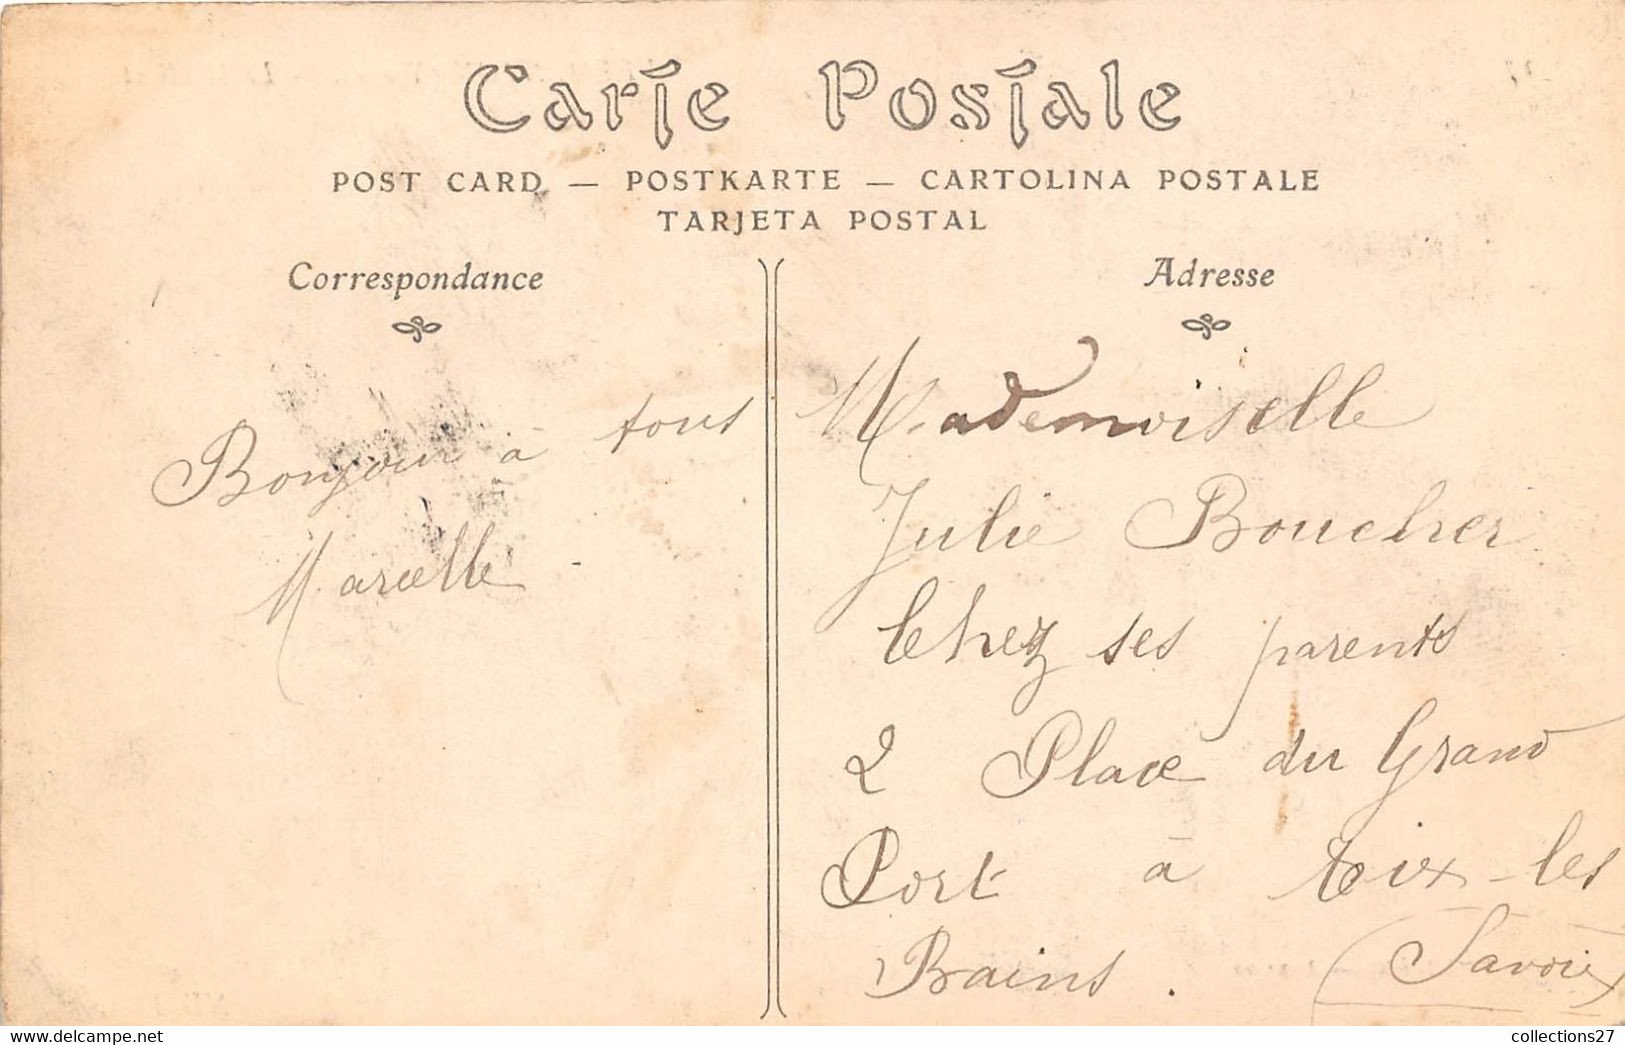 Carte Postale
POST CARD — POSTKARTE — CARTOLINA POSTALE
TARJETA POSTAL
Correspondance
Adresse
Bonjour à tous
Marcelle
Mademoiselle
Julie Boucher
Chez ses parents
2 Place du Grand
Port à Aix-les
Bains. (Savoie)
www.delcampe.net
collections27